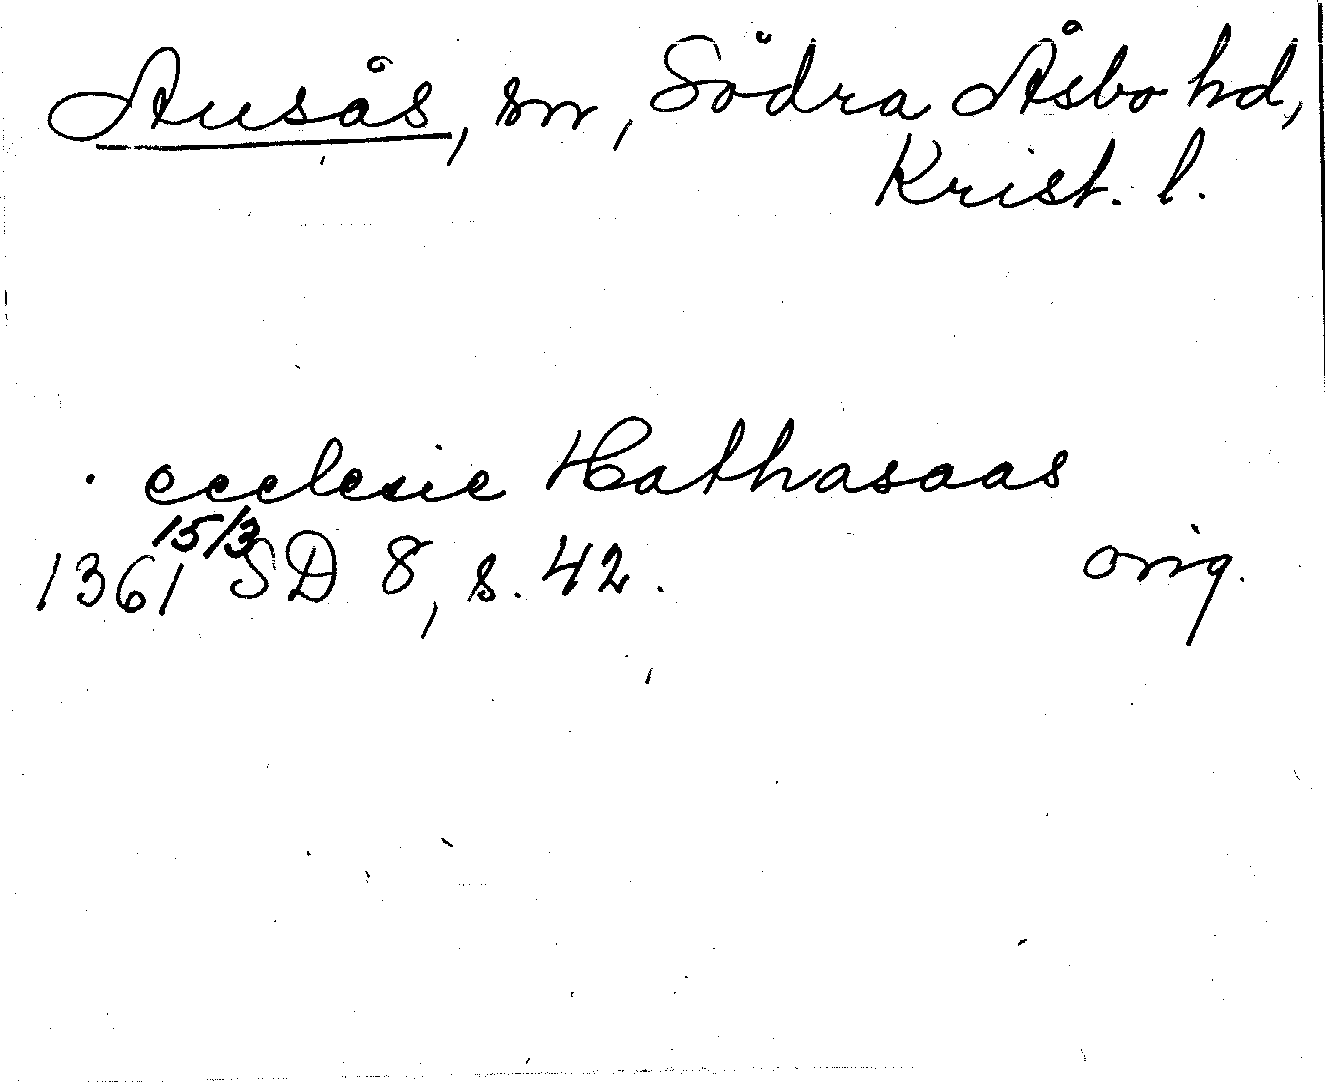 Ausås, sn, Södra Åsbo hd,
Krist. l.
ecclesie Hathasaas
1361 15/3 SD 8, s. 42. orig.